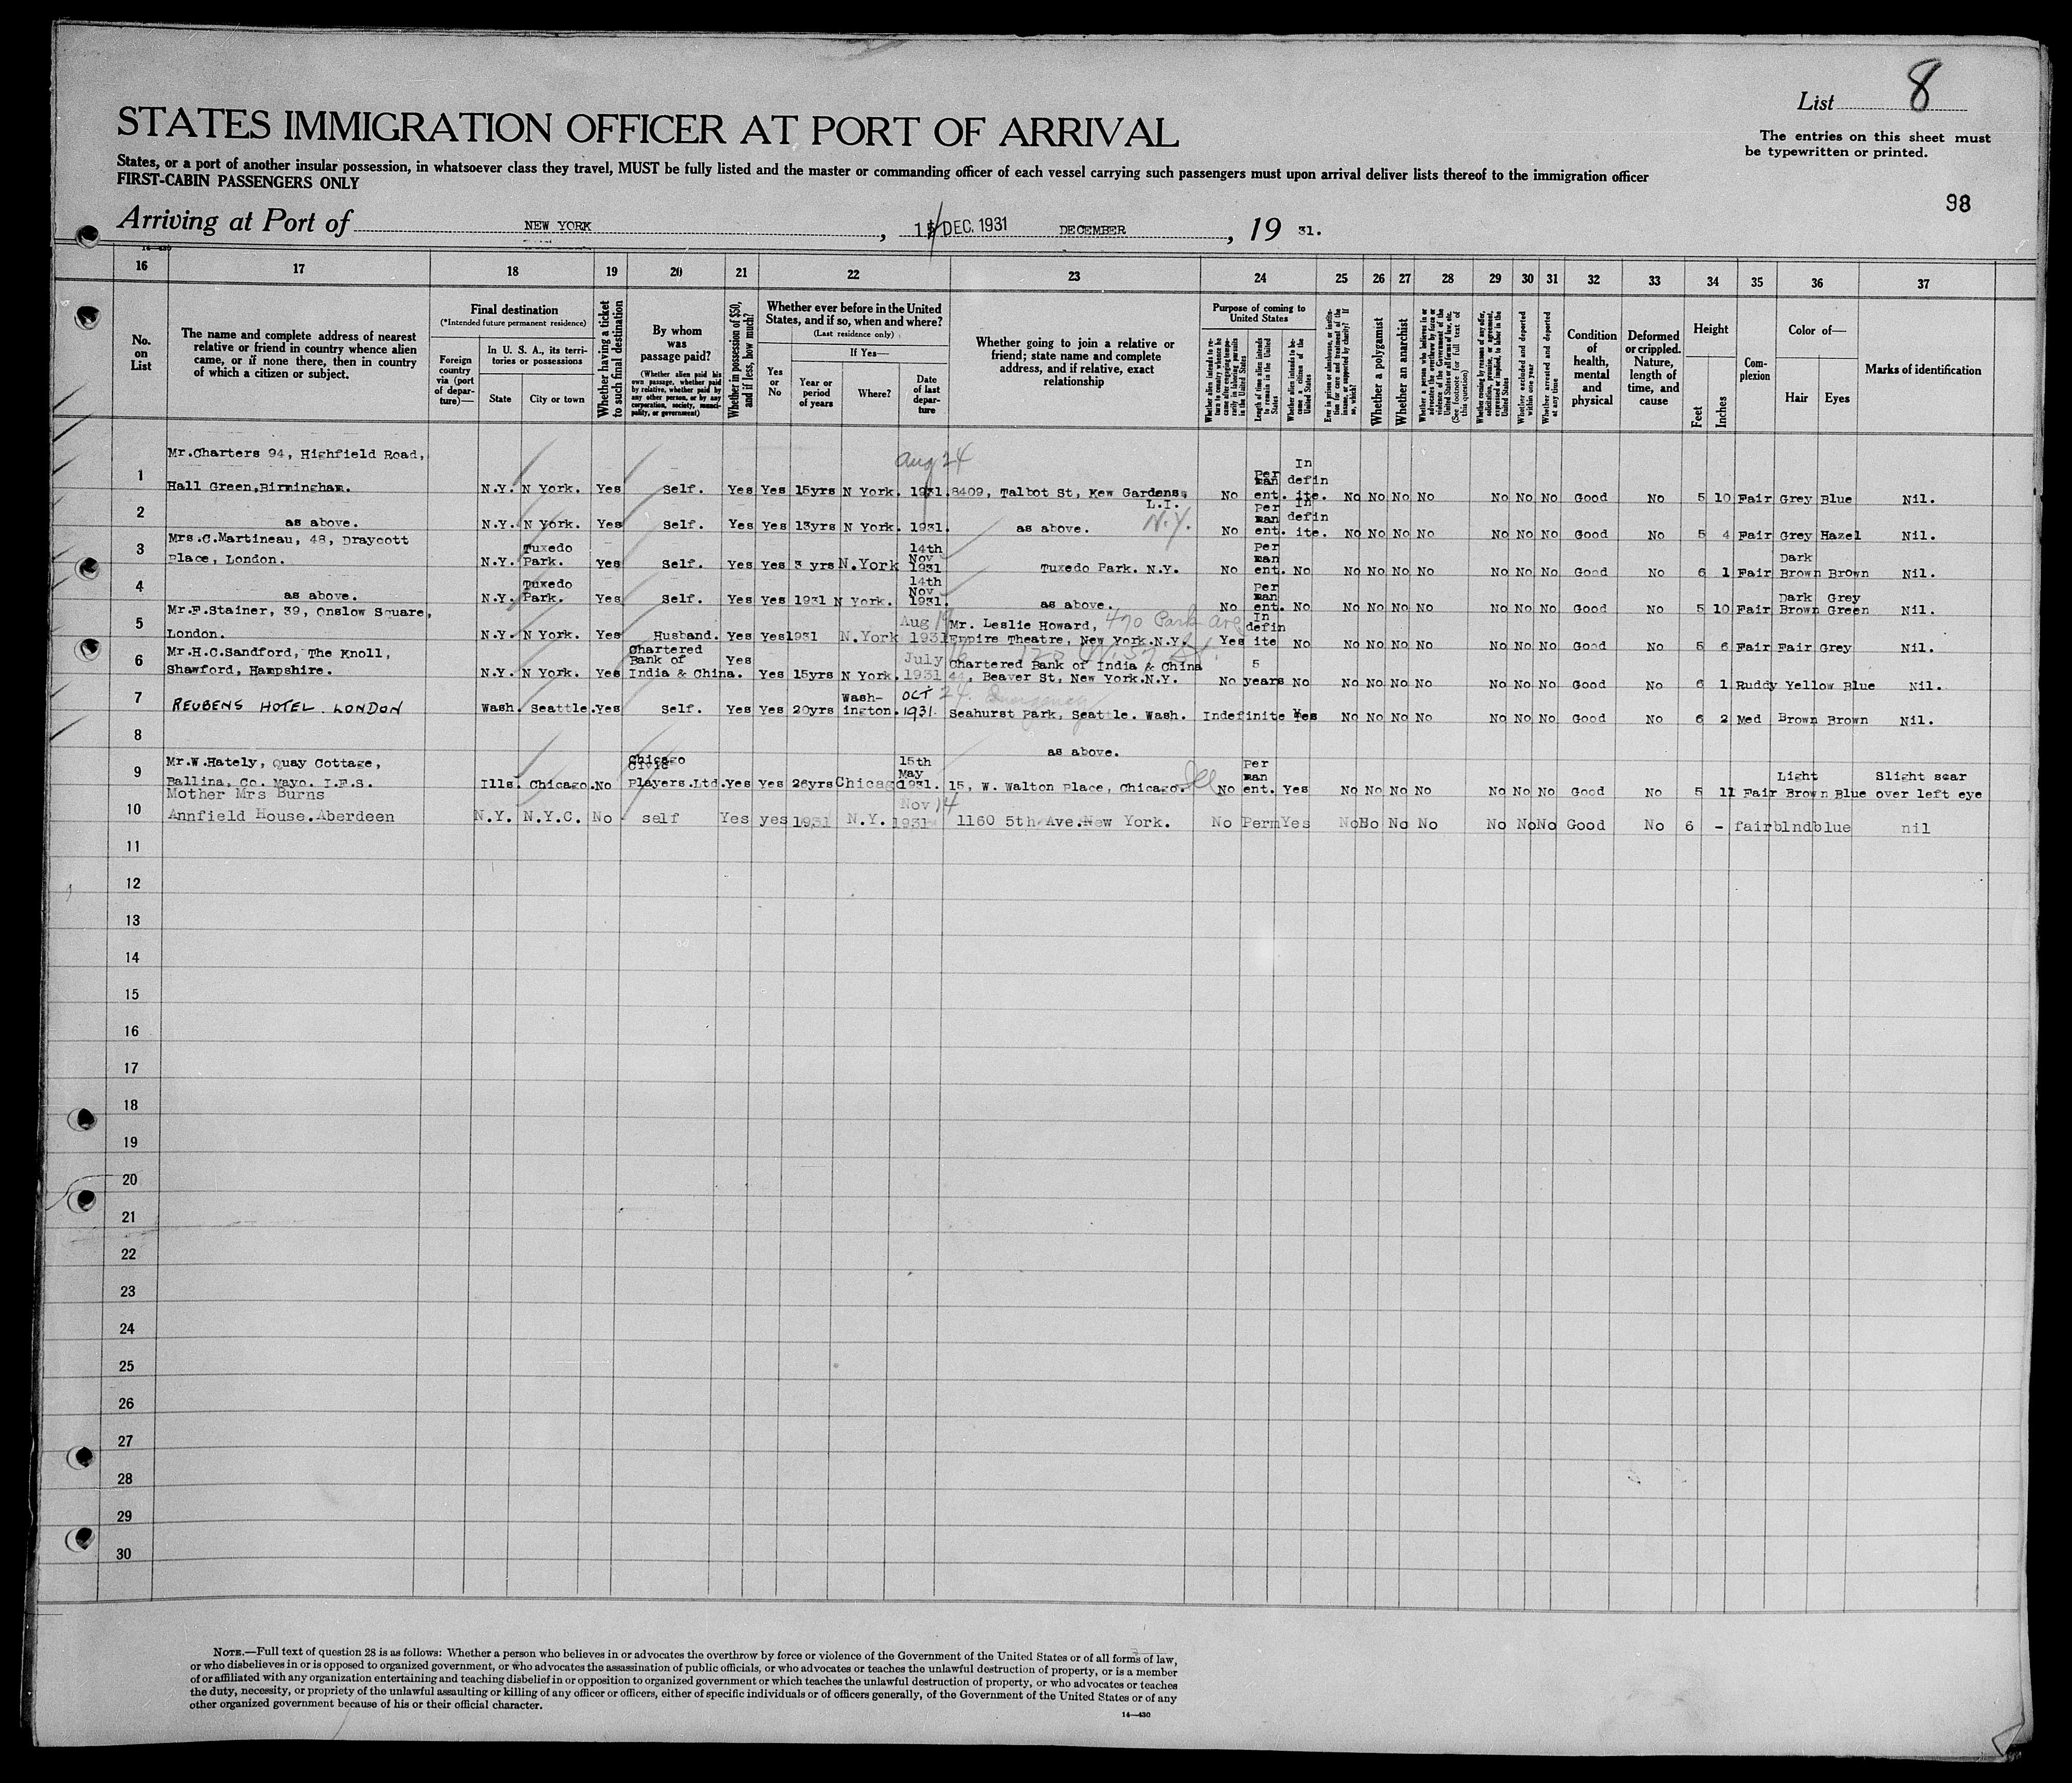 List 8
STATES IMMIGRATION OFFICER AT PORT OF ARRIVAL
The entries on this sheet must
be typewritten or printed.
States, or a port of another insular possession, in whatsoever class they travel, MUST be fully listed and the master or commanding officer of each vessel carrying such passengers must upon arrival deliver lists thereof to the immigration officer
FIRST-CABIN PASSENGERS ONLY
98
Arriving at Port of NEW YORK, DEC. 1931 DECEMBER, 19 31.
16 17 18 19 20 21 22 23 24 25 26 27 28 29 30 31 32 33 34 35 36 37
No. on List
The name and complete address of nearest relative or friend in country whence alien came, or if none there, then in country of which a citizen or subject.
Final destination
(*Intended future permanent residence)
Foreign country via (port of departure)—
In U. S. A., its territories or possessions
State
City or town
Whether having a ticket to such final destination
By whom was passage paid?
(Whether alien paid his own passage, whether paid by relative, whether paid by any other person, or by any corporation, society, municipality, or government)
Whether in possession of $50, and if less, how much?
Whether ever before in the United States, and if so, when and where?
(Last residence only)
Yes or No
If Yes—
Year or period of years
Where?
Date of last departure
Whether going to join a relative or friend; state name and complete address, and if relative, exact relationship
Purpose of coming to United States
Length of time alien intends to remain in the United States
Whether alien intends to become a citizen of the United States
Whether a polygamist
Whether an anarchist
Whether excluded and deported within one year
Whether arrested and deported at any time
Condition of health, mental and physical
Deformed or crippled. Nature, length of time, and cause
Height
Feet
Inches
Complexion
Color of—
Hair
Eyes
Marks of identification
1 Mr.Charters 94, Highfield Road, Aug 24
Hall Green,Birmingham. N.Y. N York. Yes Self. Yes Yes 15yrs N York. 1931. 8409, Talbot St, Kew Gardens, L.I. No Per man ent. In defin ite. No No No No No No No Good No 5 10 Fair Grey Blue Nil.
2 as above. N.Y. N York. Yes Self. Yes Yes 13yrs N York. 1931. as above. N.Y. No Per man ent. In defin ite. No No No No No No No Good No 5 4 Fair Grey Hazel Nil.
3 Mrs.C.Martineau, 48, Draycott
Place, London. N.Y. Tuxedo Park. Yes Self. Yes Yes 3 yrs N.York 14th Nov 1931 Tuxedo Park. N.Y. No Per man ent. No No No No No No No No Good No 6 1 Fair Dark Brown Brown Nil.
4 as above. N.Y. Tuxedo Park. Yes Self. Yes Yes 1931 N York. 14th Nov 1931. as above. No Per man ent. No No No No No No No No Good No 5 10 Fair Dark Brown Grey Green Nil.
5 Mr.F.Stainer, 39, Onslow Square,
London. N.Y. N York. Yes Husband. Yes Yes 1931 N.York Aug 1931 Mr. Leslie Howard, 470 Park Ave
Empire Theatre, New York.N.Y. Yes In defin ite No No No No No No No No Good No 5 6 Fair Fair Grey Nil.
6 Mr.H.C.Sandford, The Knoll,
Shawford, Hampshire. N.Y. N York. Yes Chartered Bank of India & China. Yes Yes 15yrs N York. July 1931 Chartered Bank of India & China
44, Beaver St, New York.N.Y. No 5 years No No No No No No No No Good No 6 1 Ruddy Yellow Blue Nil.
7 REUBENS HOTEL. LONDON Wash. Seattle. Yes Self. Yes Yes 20yrs Wash-ington. OCT 24. 1931. Seahurst Park, Seattle. Wash. Indefinite Yes No No No No No No No Good No 6 2 Med Brown Brown Nil.
8 as above.
9 Mr.W.Hately, Quay Cottage,
Ballina, Co. Mayo. I.F.S. Ills. Chicago. No Chicago Civic Players.Ltd. Yes Yes 26yrs Chicago 15th May 1931. 15, W. Walton Place, Chicago. Ill No Per man ent. Yes No No No No No No No Good No 5 11 Fair Light Brown Blue Slight scar over left eye
10 Mother Mrs Burns
Annfield House.Aberdeen N.Y. N.Y.C. No self Yes yes 1931 N.Y. Nov 14 1931 1160 5th Ave.New York. No Perm Yes No No No No No No No Good No 6 - fair blnd blue nil
11
12
13
14
15
16
17
18
19
20
21
22
23
24
25
26
27
28
29
30
NOTE.—Full text of question 28 is as follows: Whether a person who believes in or advocates the overthrow by force or violence of the Government of the United States or of all forms of law,
or who disbelieves in or is opposed to organized government, or who advocates the assassination of public officials, or who advocates or teaches the unlawful destruction of property, or is a member
of or affiliated with any organization entertaining and teaching disbelief in or opposition to organized government or which teaches the unlawful destruction of property, or who advocates or teaches
the duty, necessity, or propriety of the unlawful assaulting or killing of any officer or officers, either of specific individuals or of officers generally, of the Government of the United States or of any
other organized government because of his or their official character.
14—430